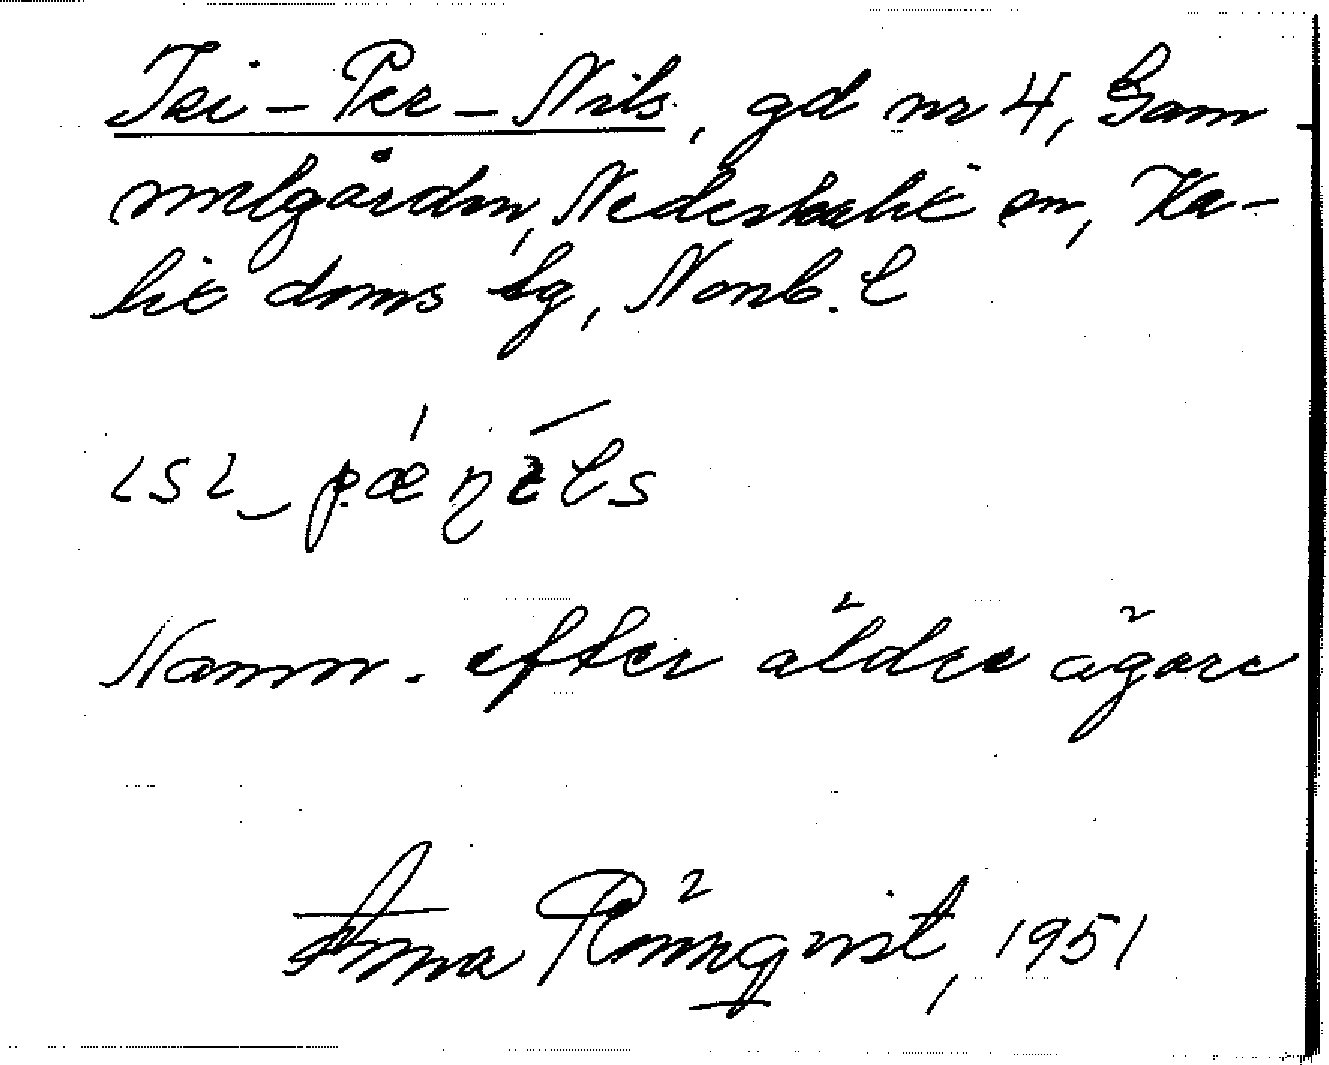 Isi - Per - Nils, gd nr 4, Gam-
melgården, Nederkalix sn, Ka-
lix doms tg, Norrb. l
Namn. efter äldre ägare
Anna Rönnqvist, 1951